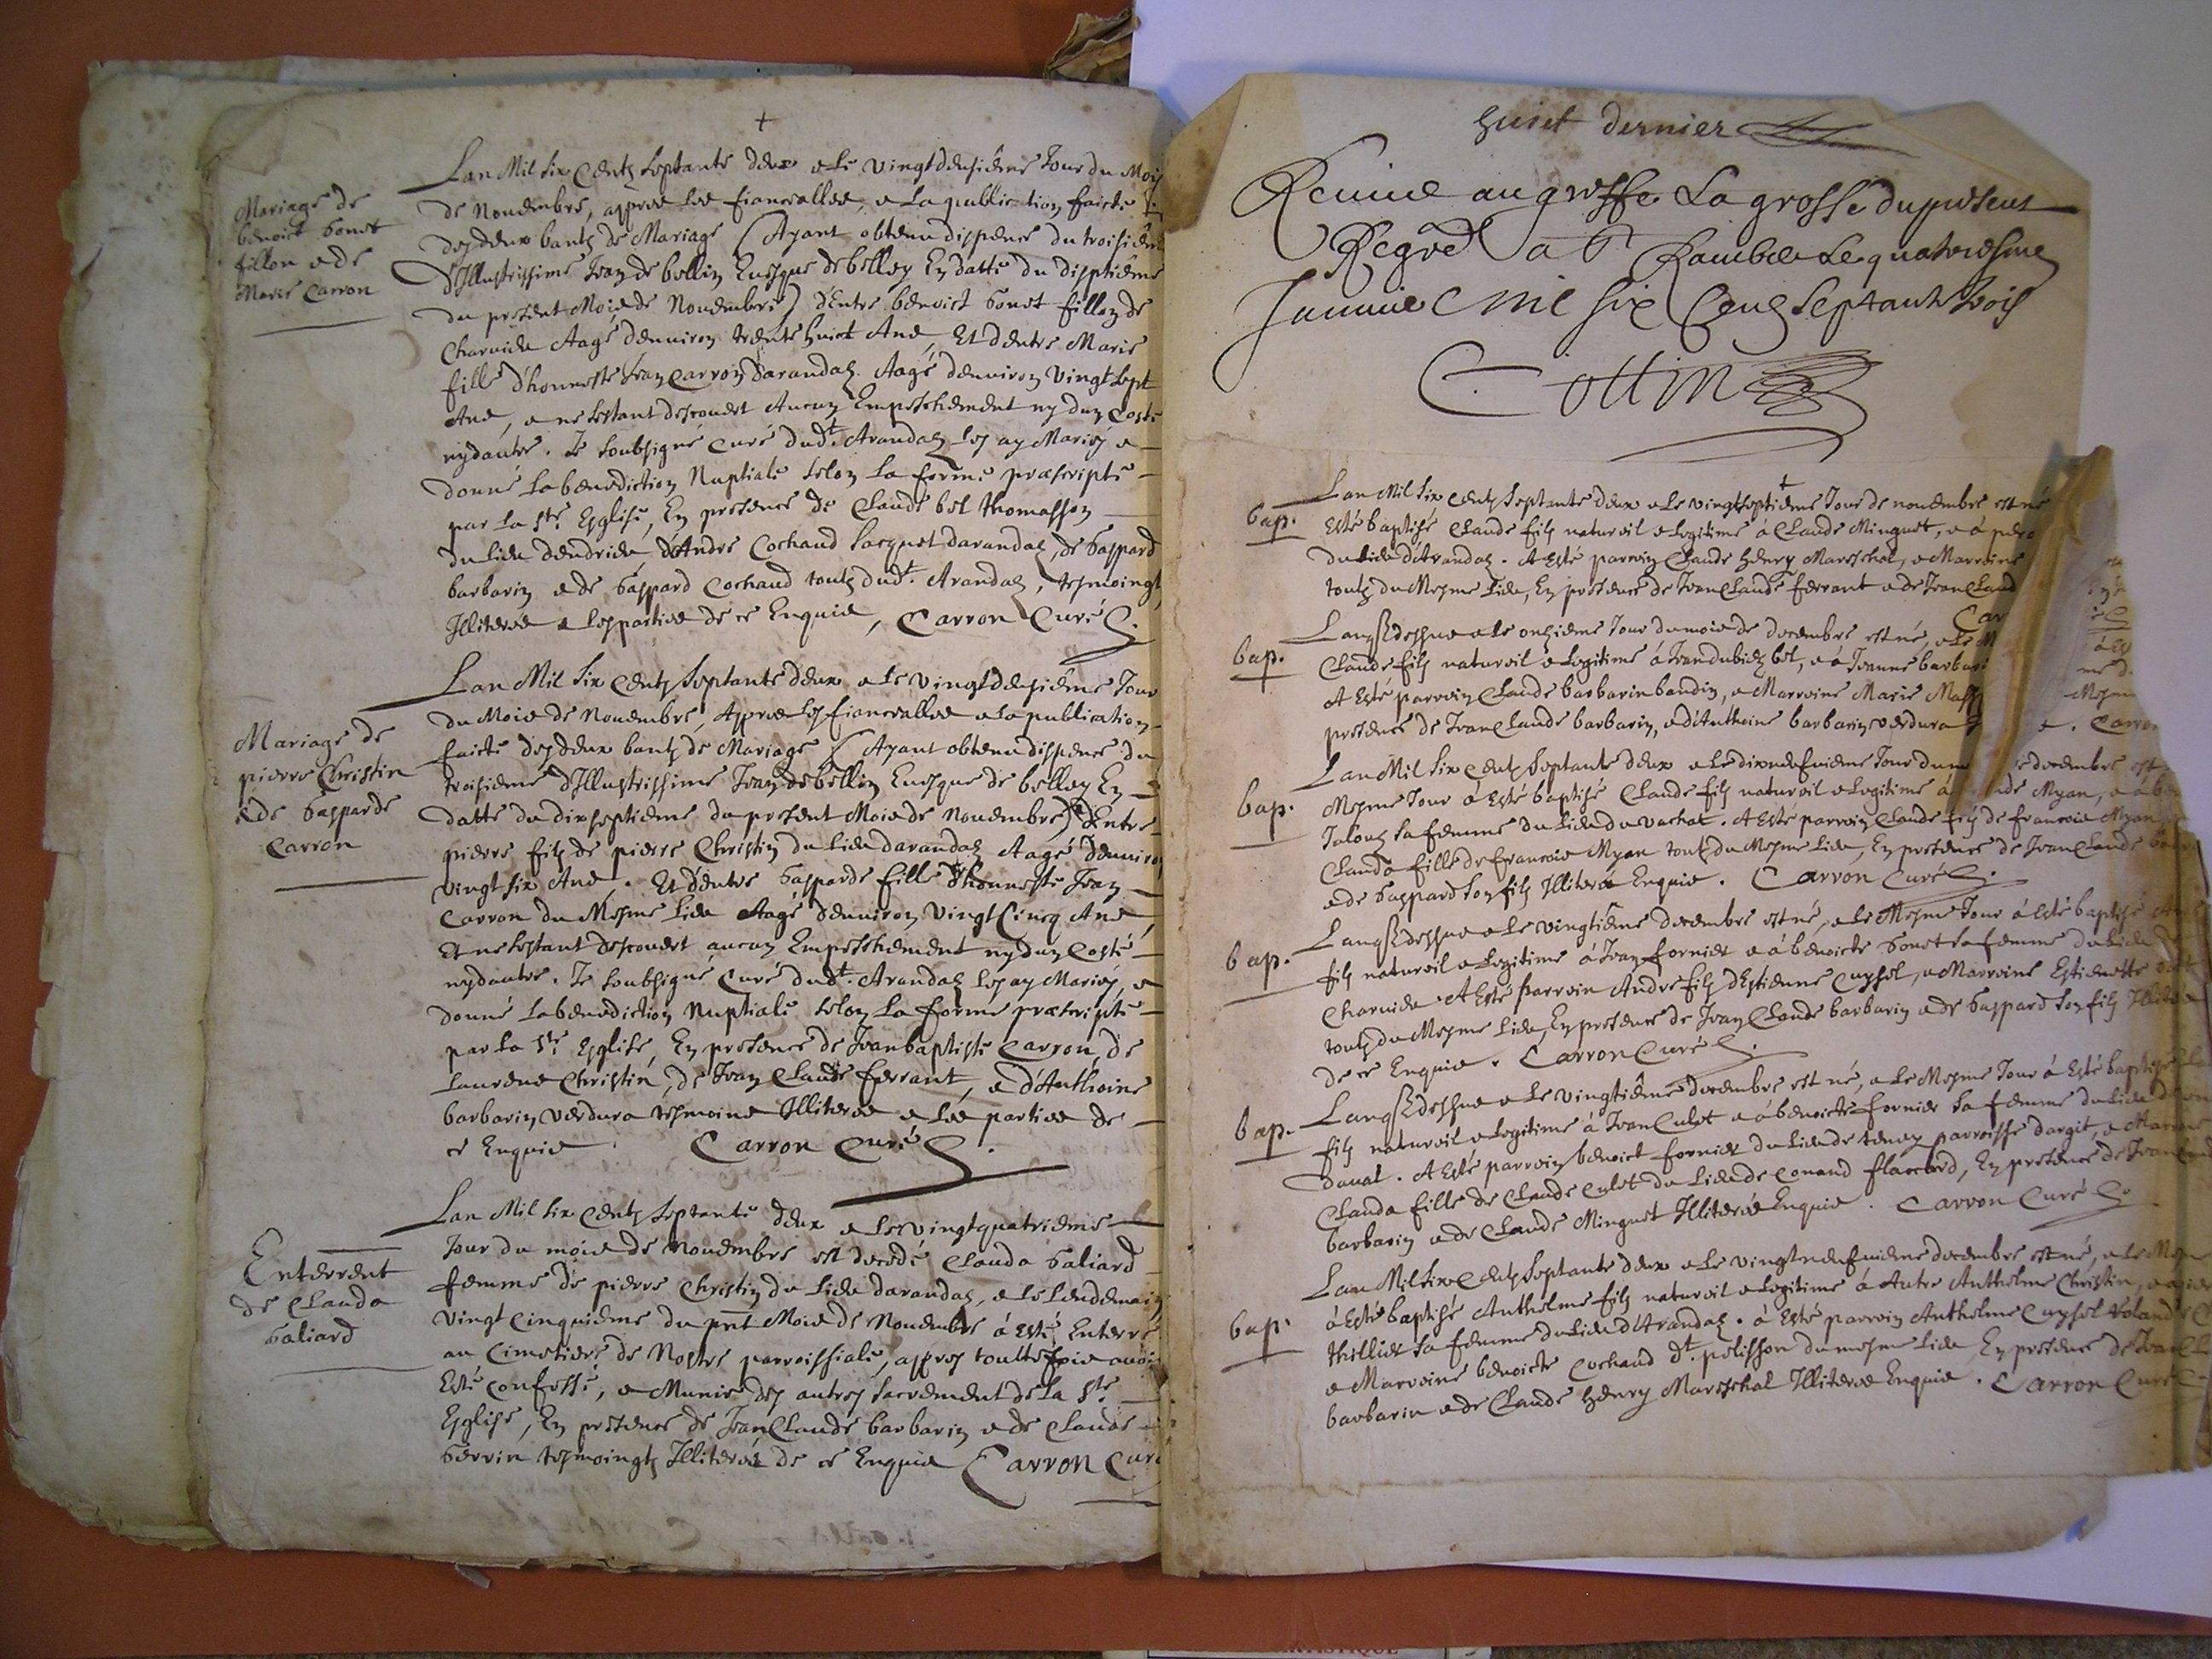 +
Lan Mil six centz septante deux & le vingtdeusiéme Jour du Mois
Mariage de
benoict bonet
fillon & de
Marie Carron
de Nouembre, appres les fiancailles, & La publication faicte
des deux bantz de Mariage (Ayant obtenu dispence du troisiéme
d'Illustrissime Jean de bellin Euesque de belley En datte du disptiéme
du present Mois de Nouembre) d'Entre benoict bonet fillon de
Charuieu Aagé denuiron trente huict Ans, Et dentre Marie
fille d'honneste Jean Carron darandaz. Aagé denuiron Vingt sept
Ans, & ne sestant descouuert Aucun Empeschement ny dun Costé
ny dautre. Je soubsigné Curé dudt. Arandaz les ay Mariés &
donné La benediction Nuptiale selon La forme præscripte
par La ste Esglise, En presence de Claude bel thomasson
du Lieu dendrieu, d'Andre Cochand Jacquet darandaz, de Gaspard
barbarin & de Gaspard Cochand toutz dudt. Arandaz, tesmoingt
Illiterés & les parties de ce Enquis, Carron Curé
Lan Mil Six Centz Septante deux & le vingtdeusiéme Jour
Mariage de
pierre Christin
& de Gasparde
Carron
du Mois de Nouembre, Appres les fiancailles & la publication
faicte des deux bantz de Mariage (Ayant obtenu dispence du
troisieme d'Illustrissime Jean de bellin Euesque de belley En
datte du dixseptieme du present Mois de Nouembre) d'Entre
pierre filz de pierre Christin du Lieu darandaz Aagé denuiron
Vingt six Ans. Et dentre Gasparde fille d'honneste Jean
Carron du Mesme Lieu Aagé denuiron Vingt Cincq Ans
Et ne sestant descouuert aucun Empeschement ny dun Costé
ny dautre. Je soubsigné Curé dudt. Arandaz les ay Mariés, &
donné La benediction Nuptiale selon La forme præscripte
par La ste Esglise, En presence de Jeanbaptiste Carron, de
Laurens Christin, de Jean Claude ferrant, & d'Anthoine
barbarin verdura tesmoins Illiterés & Les parties de
ce Enquis. Carron Curé
Lan Mil six Centz Septante deux & le vingtquatrieme
Enterrent
de Clauda
Galiard
Jour du mois de Nouembre est decedé Clauda Galiard
femme de pierre Christin du Lieu darandaz, & le Lendemain
vingt Cinquieme du pnt Mois de Nouembre á esté Enterré
au Cimetiere de Nostre parroissiale, appres touttefois auoir
Esté Confessé, & Munie des autres sacrement de La ste
Esglise, En presence de Jean Claude barbarin & de Claude
Gervin tesmoingtz Illiterés de ce Enquis Carron Curé
huict dernier
Remise au greffe La grosse du present
Regre a St Rambert Le quatorsiesme
Januier mil six Cent septant trois
Cottin
+
bap.
Lan Mil six Centz Septante deux & le vingtseptiéme Jour de nouembre est né
Esté baptisé Claude filz naturel & Legitime á Claude Minguet, & á
du Lieu d'Arandaz. A Esté parrein Claude henry Mareschal, & Marreine
toutz du Mesme Lieu, En presence de Jean Claude ferrant & de Jean Claud
Car
bap.
Lan q̃ dessus & le onziéme Jour du mois de decembre est né, & le M
Claude filz naturel & Legitime á Jean dubiez bel, & á Jeanne barbari
A Esté parrein Claude barbarin baudin, & Marreine Marie Mass
presence de Jean Claude barbarin, & d'Anthoine barbarin verdura
bap.
Lan Mil Six Centz Septante deux & le dixneufuieme Jour du m decembre est
Mesme Jour á Esté baptisé Claude filz naturel & Legitime á Myan, & á
Jalouz sa femme du Lieu du vachat. A Esté parrein Claude filz de francois Myan
Clauda fille de francois Myan toutz du Mesme Lieu, En presence de Jean Claude bar
& de Gaspard son filz Illiterés Enquis. Carron Curé
bap.
Lan q̃ dessus & le vingtiéme decembre est né, & le Mesme Jour á Esté baptisé
filz naturel & Legitime á Jean fornier & á benoicte bonet sa femme du Lieu de
Charuieu. A Esté parrein Andre filz d'Estienne Cuzsel, & Marreine Estienette
toutz du Mesme Lieu, En presence de Jean Claude barbarin & de Gaspard son filz Illiterés
de ce Enquis. Carron Curé
bap.
Lan q̃ dessus & le vingtiéme decembre est né, & le Mesme Jour á Esté baptisé
filz naturel & Legitime á Jean Culet & á benoicte fornier sa femme du Lieu de
daual. A Esté parrein benoict fornier du Lieu de tenay parroisse dargit, & Marreine
Clauda fille de Claude Culet du Lieu de Conand flaccard, En presence de Jean Claude
barbarin & de Claude Minguet Illiterés Enquis. Carron Curé
bap.
Lan Mil Six Centz Septante deux & le vingtneufuieme decembre est né, & le Mes
á Esté baptisé Anthelme filz naturel & Legitime á Autre Anthelme Christin, & á
thillier sa femme du Lieu d'Arandaz. á Esté parrein Anthelme Cuzsel
& Marreine benoicte Cochand dt. polisson du mesme Lieu En presence de Jean Cl
barbarin & de Claude henry Mareschal Illiterés Enquis. Carron Curé